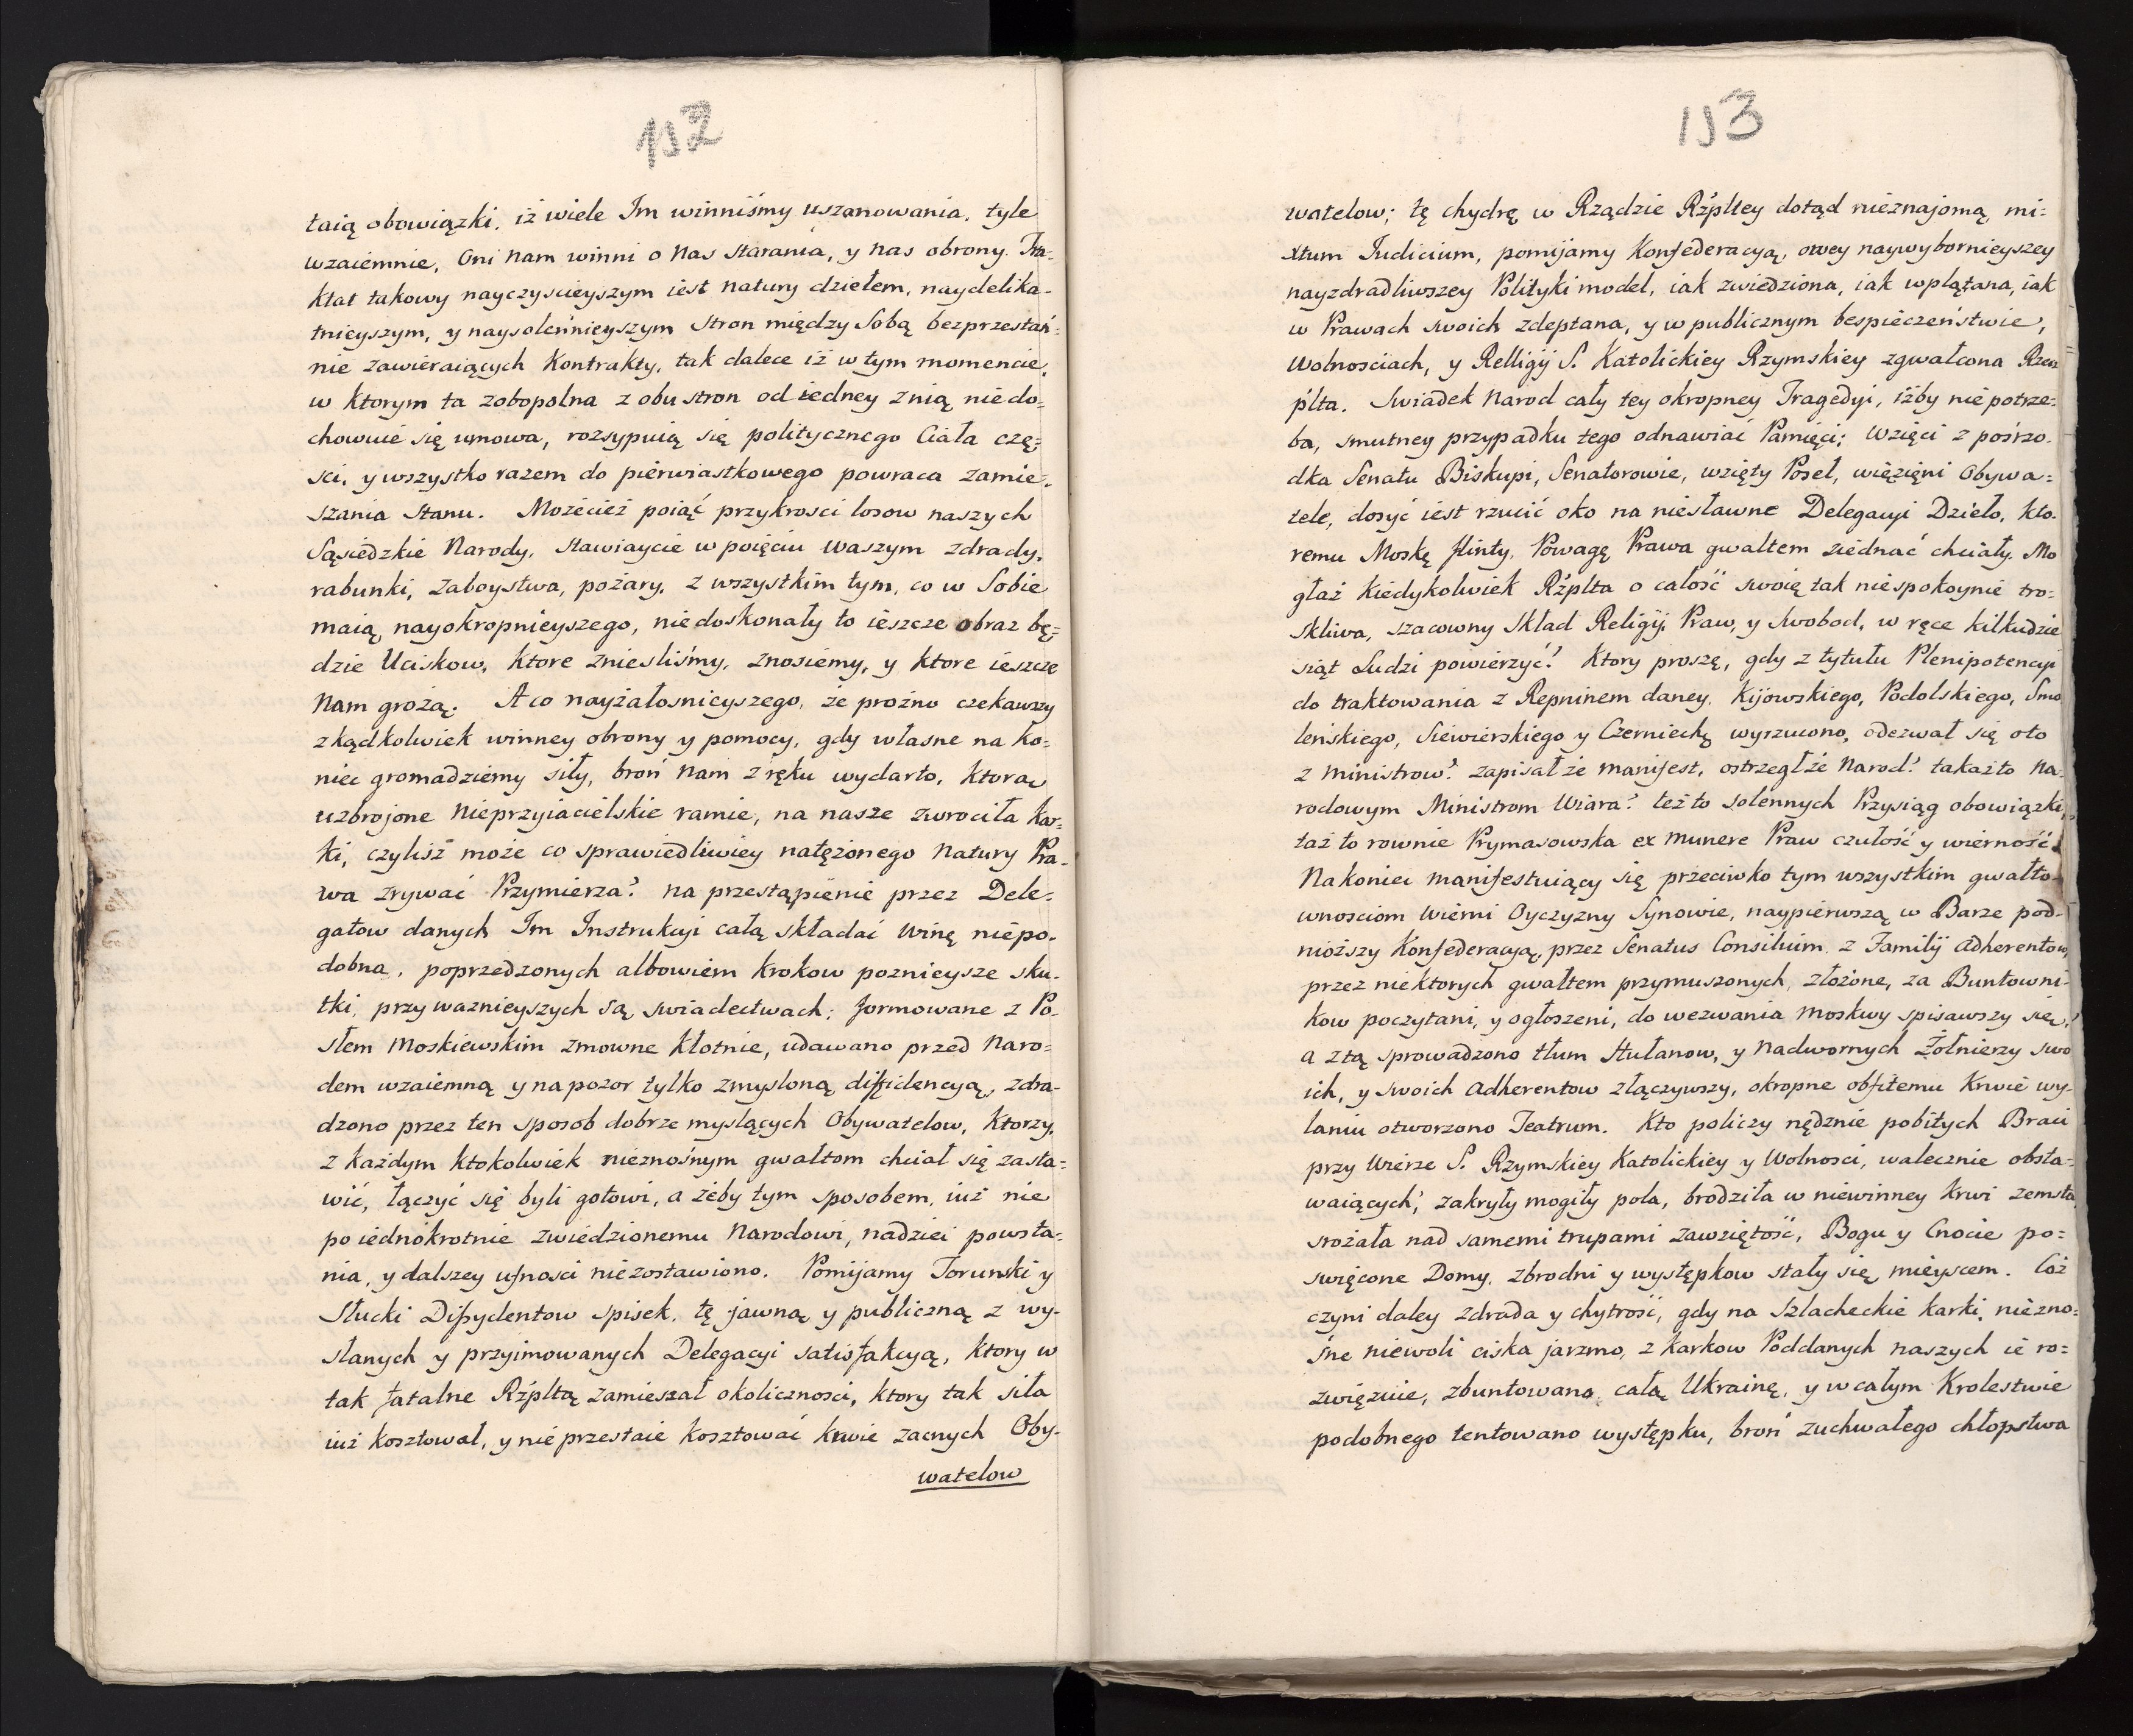 152
taią obowiązki, iż wiele Im winniśmy uszanowania, tyle
wzaiemnie, Oni Nam winni o Nas starania, y Nas obrony. Tra-
ktat takowy nayczyscieyszym iest Natury dziełem, naydelika-
tnieyszym, y naysolennieyszym Stron między Sobą bezprzestań-
nie zawieraiących Kontrakty, tak dalece iż w tym momencie,
w ktorym ta zobopolna z obu stron od iedney z nią niedo-
chowuie się umowa, rozsypuią się politycznego Ciała czę-
sci, y wszystko razem do pierwiastkowego powraca zamie-
szania Stanu. Możecież poiąć przykrosci losow naszych
Sąsiedzkie Narody, stawiaycie w poięciu Waszym zdrady,
rabunki, zaboystwa, pożary, z wszystkim tym, co w Sobie
maią nayokropnieyszego, niedoskonały to ieszcze obraz bę-
dzie Uciskow, ktore znieslismy, znosiemy, y ktore ieszcze
Nam grożą. A co nayżałosnieyszego, że prożno czekawszy
zkądkolwiek winney obrony y pomocy, gdy własne na ko-
niec gromadziemy siły, broń Nam z ręku wydarto, ktora
uzbrojone Nieprzyiacielskie ramie, na nasze zwrociła Kar-
ki, czyliż może co sprawiedliwiey natężonego Natury Pra-
wa zrywać Przymierza? na przestąpienie przez Dele-
gatow danych Im Instrukcyi całą składać winę niepo-
dobna, poprzedzonych albowiem Krokow poznieysze sku-
tki, przy waznieyszych są swiadectwach; formowane z Po-
słem Moskiewskim zmowne Kłotnie, udawano przed Naro-
dem wzaiemną y na pozor tylko zmysloną diffidencyą, zdra-
dzono przez ten sposob dobrze myslących Obywatelow, ktorzy,
z każdym ktokolwiek nieznośnym gwałtom chciał się zasta-
wić, łączyć się byli gotowi, a żeby tym sposobem, iuż nie
poiednokrotnie zwiedzionemu Narodowi, nadziei powsta-
nia, y dalszey ufnosci niezostawiono. Pomijamy Torunski y
Słucki Dissydentow spisek, tę jawną y publiczną z wy-
słanych y przyimowanych Delegacyi satisfakcyą, ktory w
tak fatalne Rżpltą zamieszał okolicznosci, ktory tak siła
iuż kosztował, y nieprzestaie kosztować Krwie zacnych Oby-
watelow
153
watelow; tę chydrę w Rządzie Rżpltey dotąd nieznajomą, mi-
xtum Iudicium, pomijamy Konfederacyą, owey naywybornieyszey
nayzdradliwszey Polityki model, iak zwiedziona, iak wplątana, iak
w Prawach swoich zdeptana, y w publicznym bespieczeństwie,
Wolnosciach, y Relligij S. Katolickiey Rzymskiey zgwałcona Rzecz
pĺta. Swiadek Narod cały tey okropney Tragedyi, iżby nie potrze-
ba, smutney przypadku tego odnawiać Pamięci; Wzięci z pośrzo-
dka Senatu Biskupi, Senatorowie, wzięty Poseł, więzięni Obywa-
tele, dosyć iest rzucić oko na niesławne Delegacyi Dzieło, kto-
remu Moskę flinty, Powagę Prawa gwałtem ziednać chciały. Mo
głaż kiedykolwiek Rżplta o całość swoię tak niespokoynie tro-
skliwa, szacowny Skład Religij, Praw, y Swobod, w ręce kilkudzie
siąt Ludzi powierzyć? Ktory proszę, gdy z tytułu Plenipotencyi
do traktowania z Repninem daney, Kijowskiego, Podolskiego, Smo
leńskiego, Siewierskiego y Czerniech, wyrzucono, odezwał się oto
z Ministrow? zapisał że manifest, ostrzegł że Narod? takaż to Na-
rodowym Ministrom Wiara? też to solennych Przysiąg obowiązki,
taż to rownie Prymasowska ex munere Praw czułość y wierność.
Nakoniec manifestuiący się przeciwko tym wszystkim gwałto-
wnosciom Wierni Oyczyzny Synowie, naypierwszą w Barze pod-
nioższy Konfederacyą, przez Senatus Consilium z Familij Adherentow,
przez niektorych gwałtem przymuszonych, złożone, za Buntowni-
kow poczytani, y ogłoszeni, do wezwania Moskwy spisawszy się,
a z tą sprowadzono tłum Hułanow, y Nadwornych Żołnierzy swo
ich, y swoich Adherentow złączywszy, okropne obfitemu Krwie wy-
laniu otworzono Teatrum. Kto policzy nędznie pobitych Braci
przy Wierze S. Rzymskiey Katolickiey y Wolnosci, walecznie obsta-
waiących; zakryły mogiły pola, brodziła w niewinney Krwi zemsta,
srożała nad samemi trupami zawziętość, Bogu y Cnocie po-
swięcone Domy, zbrodni y występkow stały się mieyscem. Coż
czyni daley zdrada y chytrość, gdy na Szlacheckie karki, niezno-
śne niewoli ciska jarzmo, z Karkow Poddanych naszych ie ro-
związuie, zbuntowano całą Ukrainę, y w całym Krolestwie
podobnego tentowano występku, broń zuchwałego chłopstwa